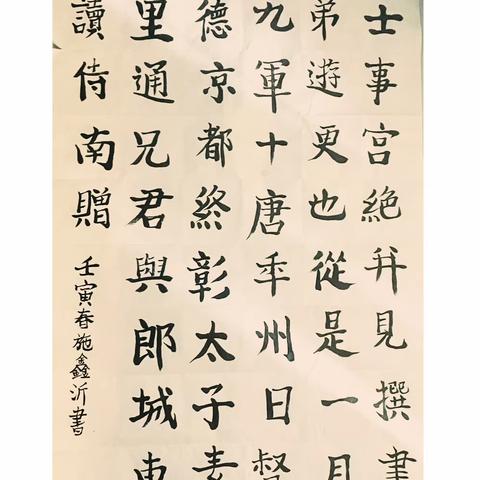 士事宮絶并見撰書
弟遊更也從是一月
九軍十唐年州日督
德京都終彰太子素
里通兄君與郎城
讀侍南贈
壬寅春施鑫沂書